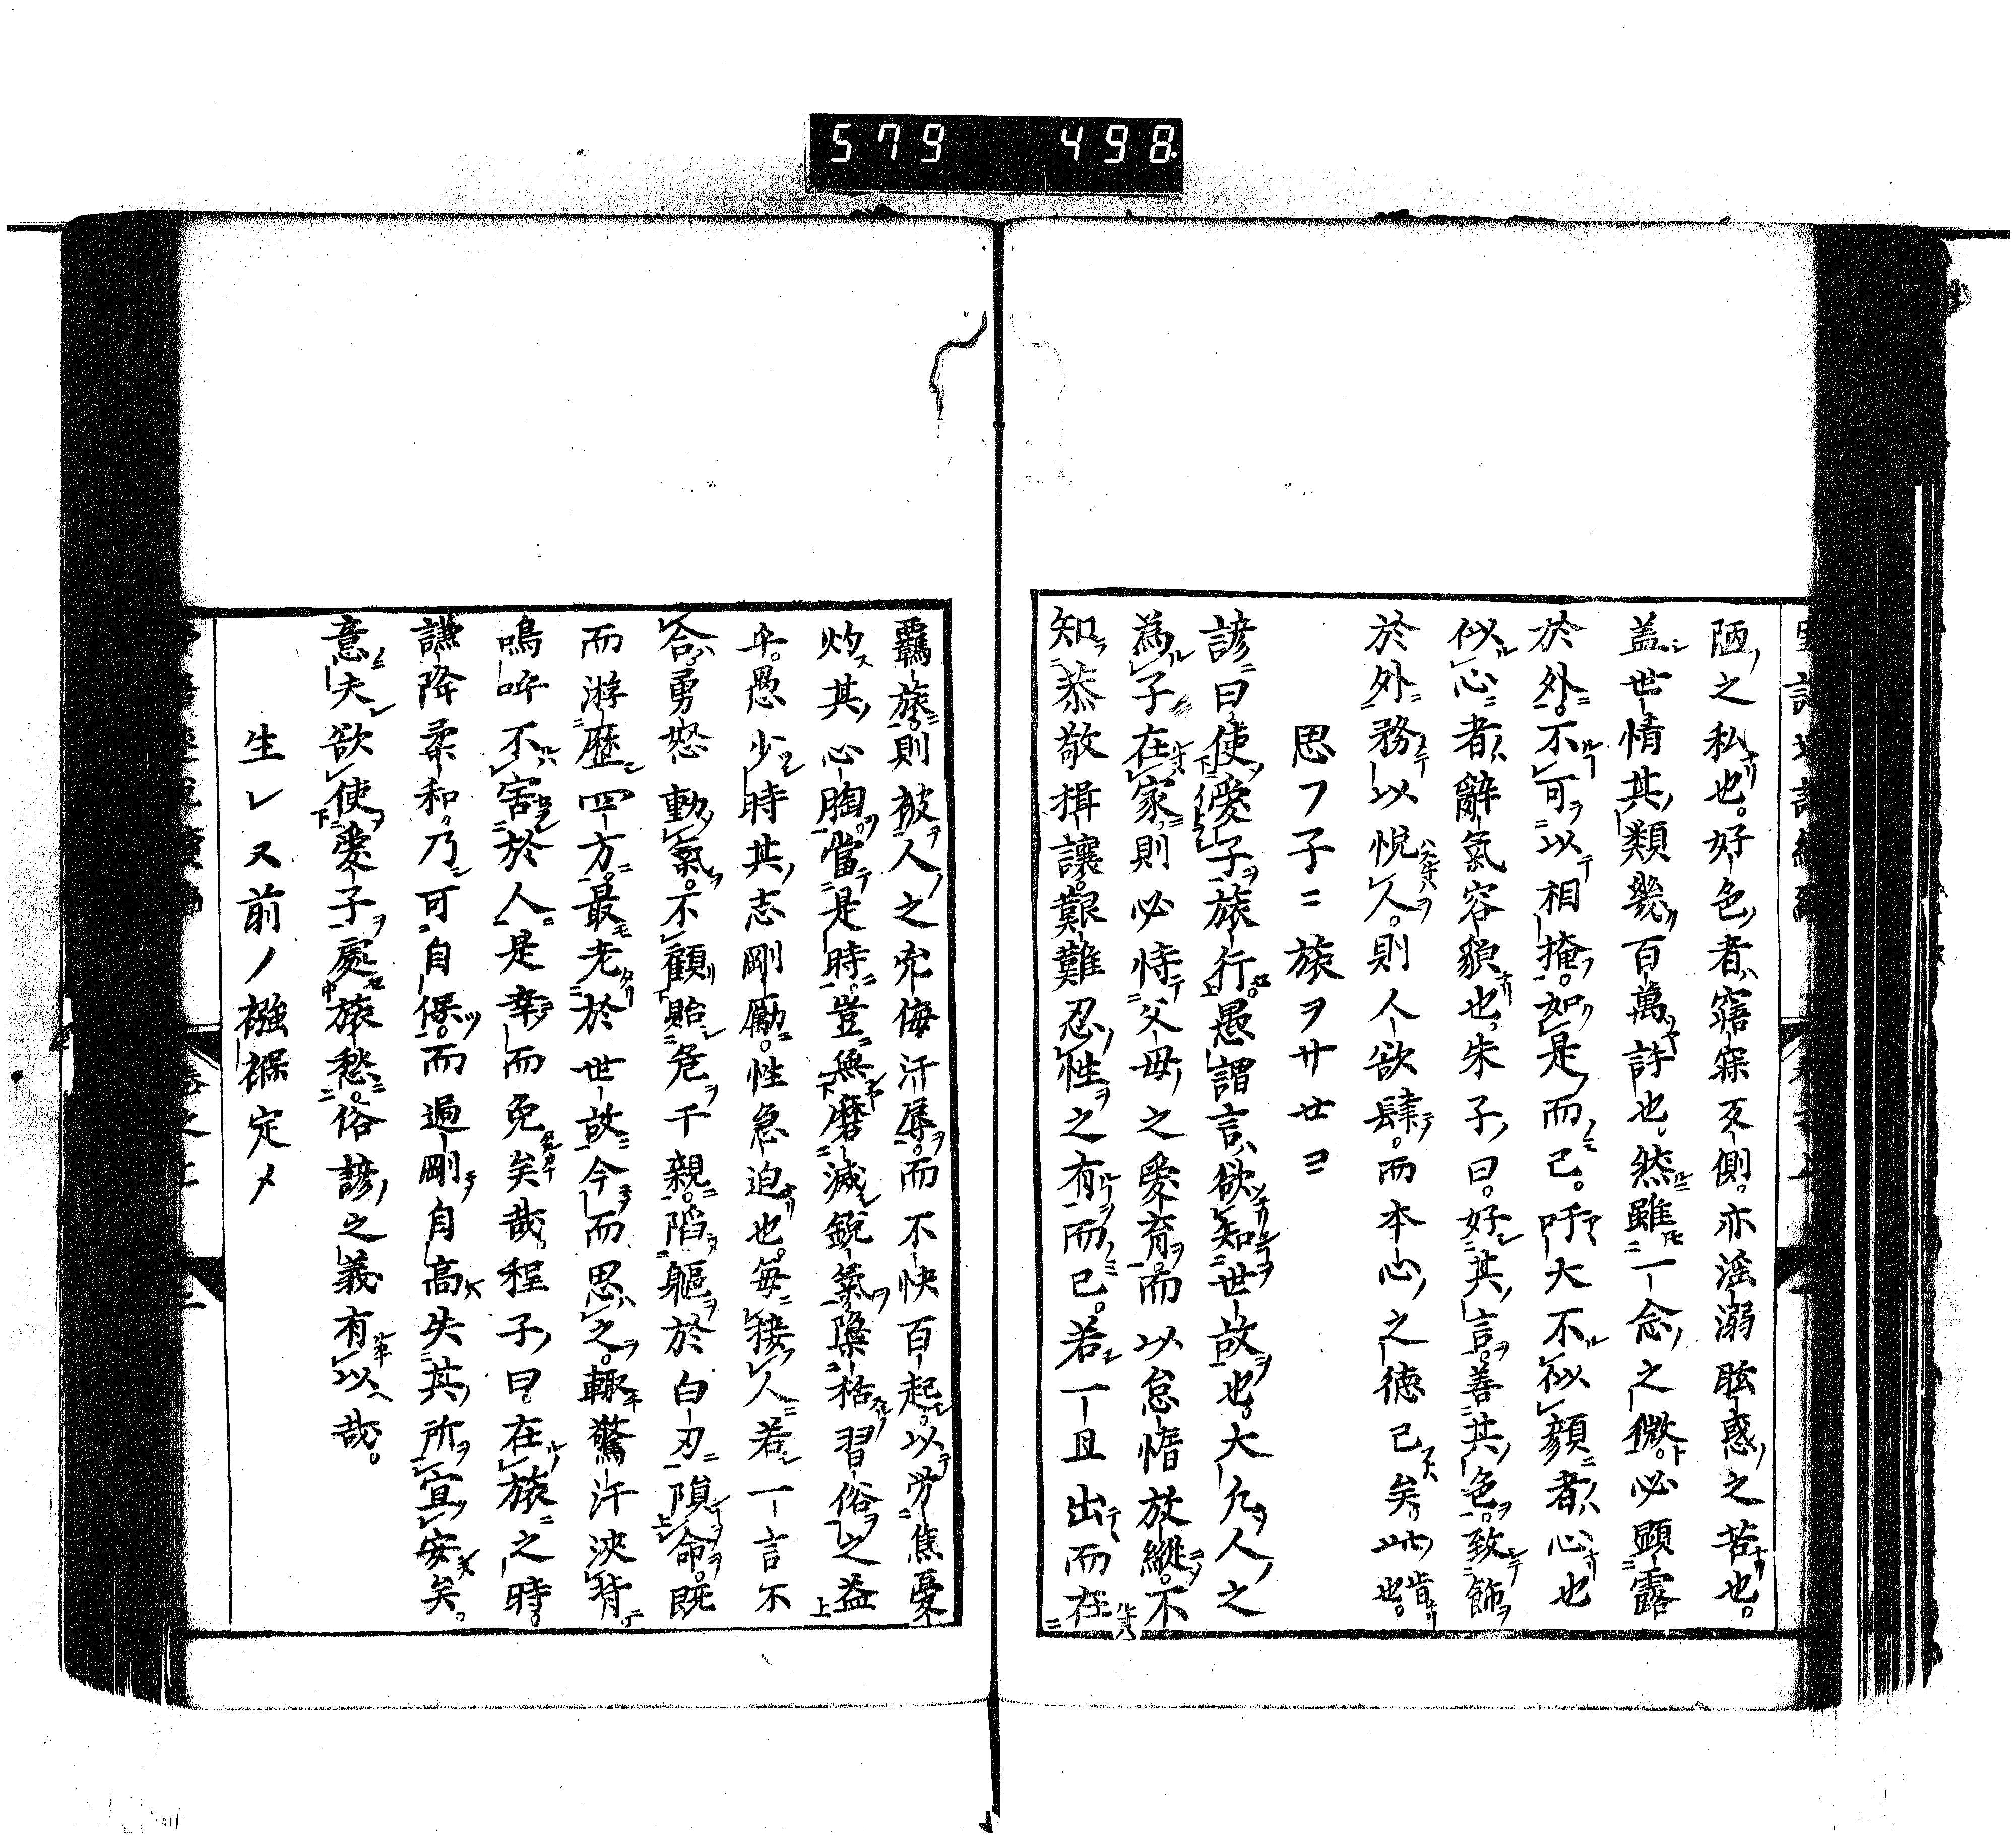 579 498
陋之私也。好色者、寤寐反側。亦淫溺眩惑之苦也。
盖世情其類幾百萬許也。然雖一念之微。必顕露
於外。不可以相掩。如是而已。吁大不似顔者、心也
似心者、辭氣容貌也、朱子曰。好其言。善其色。致飾
於外務以悦人。則人欲肆。而本心之徳已矣。此也。
思フ子ニ旅ヲサセヨ
諺曰使愛子旅行。愚謂言、欲知世故也。大凢人之
為子在家、則必恃父母之愛育。而以怠惰放縱。不
知恭敬揖讓。艱難忍性之有而已。若一旦出而在
羈旅。則被人之
侮汗辱。而不快百起。以労焦憂
灼其心胸。當是時。豈無磨滅鋭氣
枯習俗之益
乎。愚少時其志剛勵。性急迫也。毎接人若一言不
合勇怒動氣。不顧貽危干親。陷軀於白刃隕命。既
而游歴四方。最老於世故。今而思之。輙驚汗浹背
鳴呼不害於人。是幸而免矣哉。程子曰。在旅之時。
謙降柔和。乃可自保。而過剛自高失其所宜安矣。
意夫欲使愛子處旅愁。俗諺之義有以哉。
生レヌ前ノ襁褓定メ